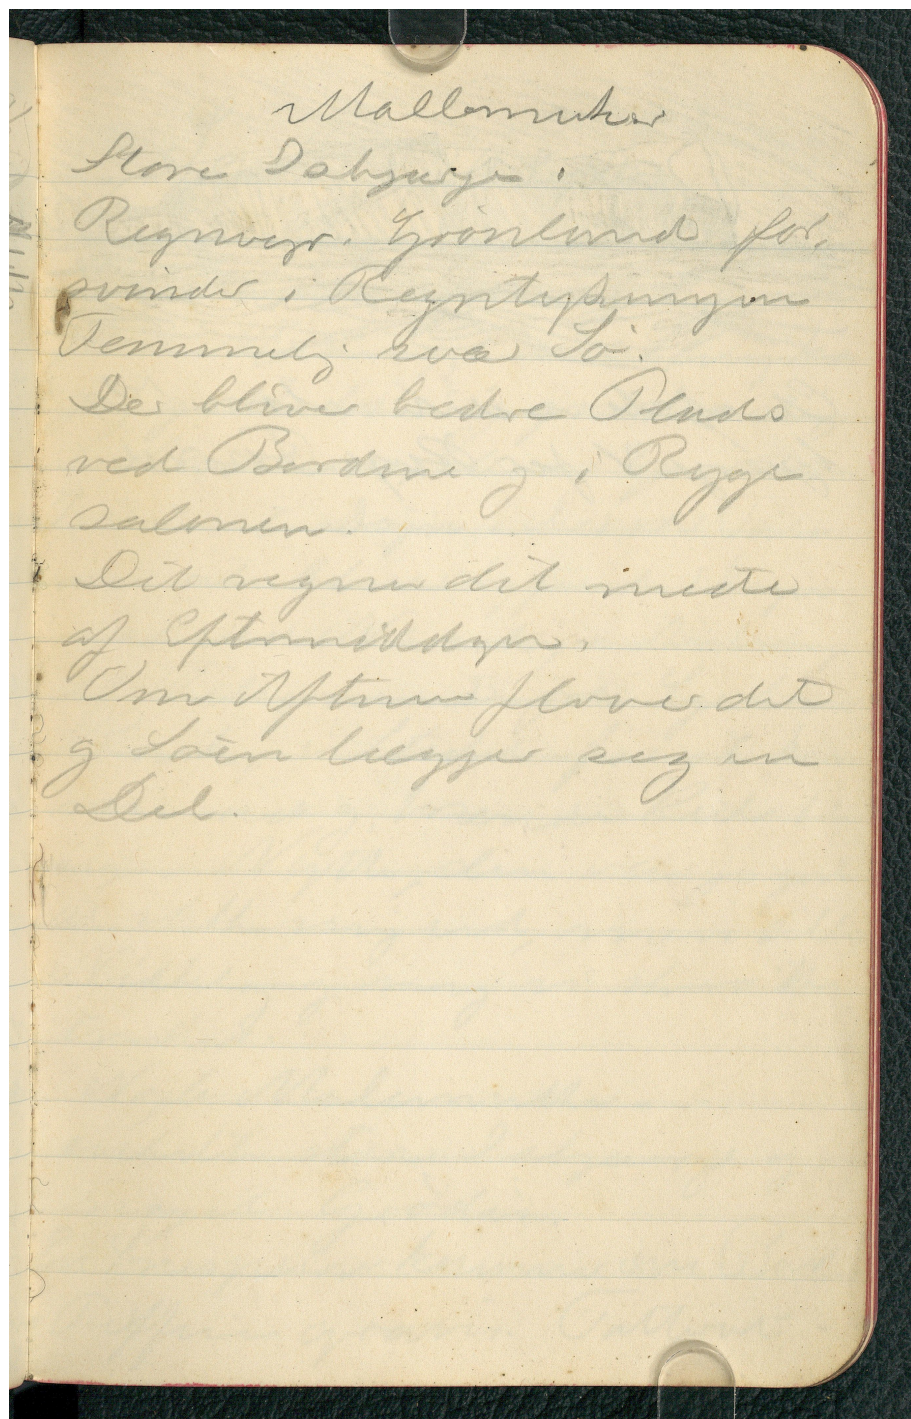 Mallemukker
Store Isbjærge.
Regnvejr. Grönland for-
svinder i Regntykningen
Temmelig svær Sö.
Der bliver bedre Plads
ved Bordene og i Ryge
salonen.
Det regner det meste
af Eftermiddagen.
Om Aftenen flover det
og Söen lægger sig en
Del.